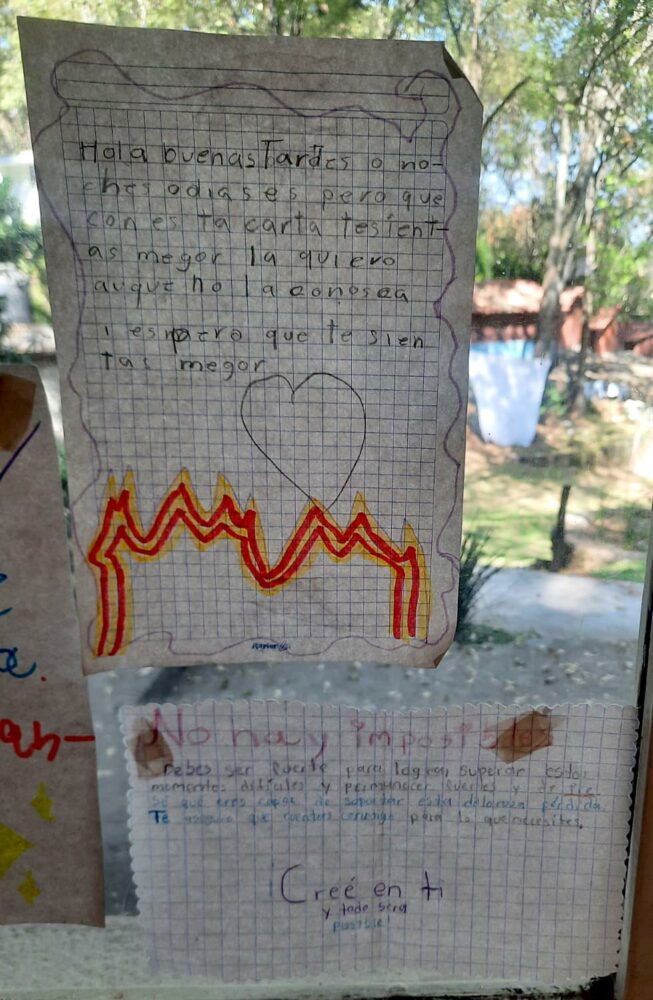 Hola buenas Tardes o no-
ches o dias es pero que
con es ta carta tesient-
as megor la quiero
auque no la conosca
i espero que te sien
tas megor
No hay imposibles
Debes ser fuerte para lograr superar estos
momentos dificiles y permanecer fuertes y de pie
Sé que eres capaz de soportar esta dolorosa perdida.
Te aseguro que cuentas conmigo para lo que necesites.
Creé en ti
y todo sera
posible!